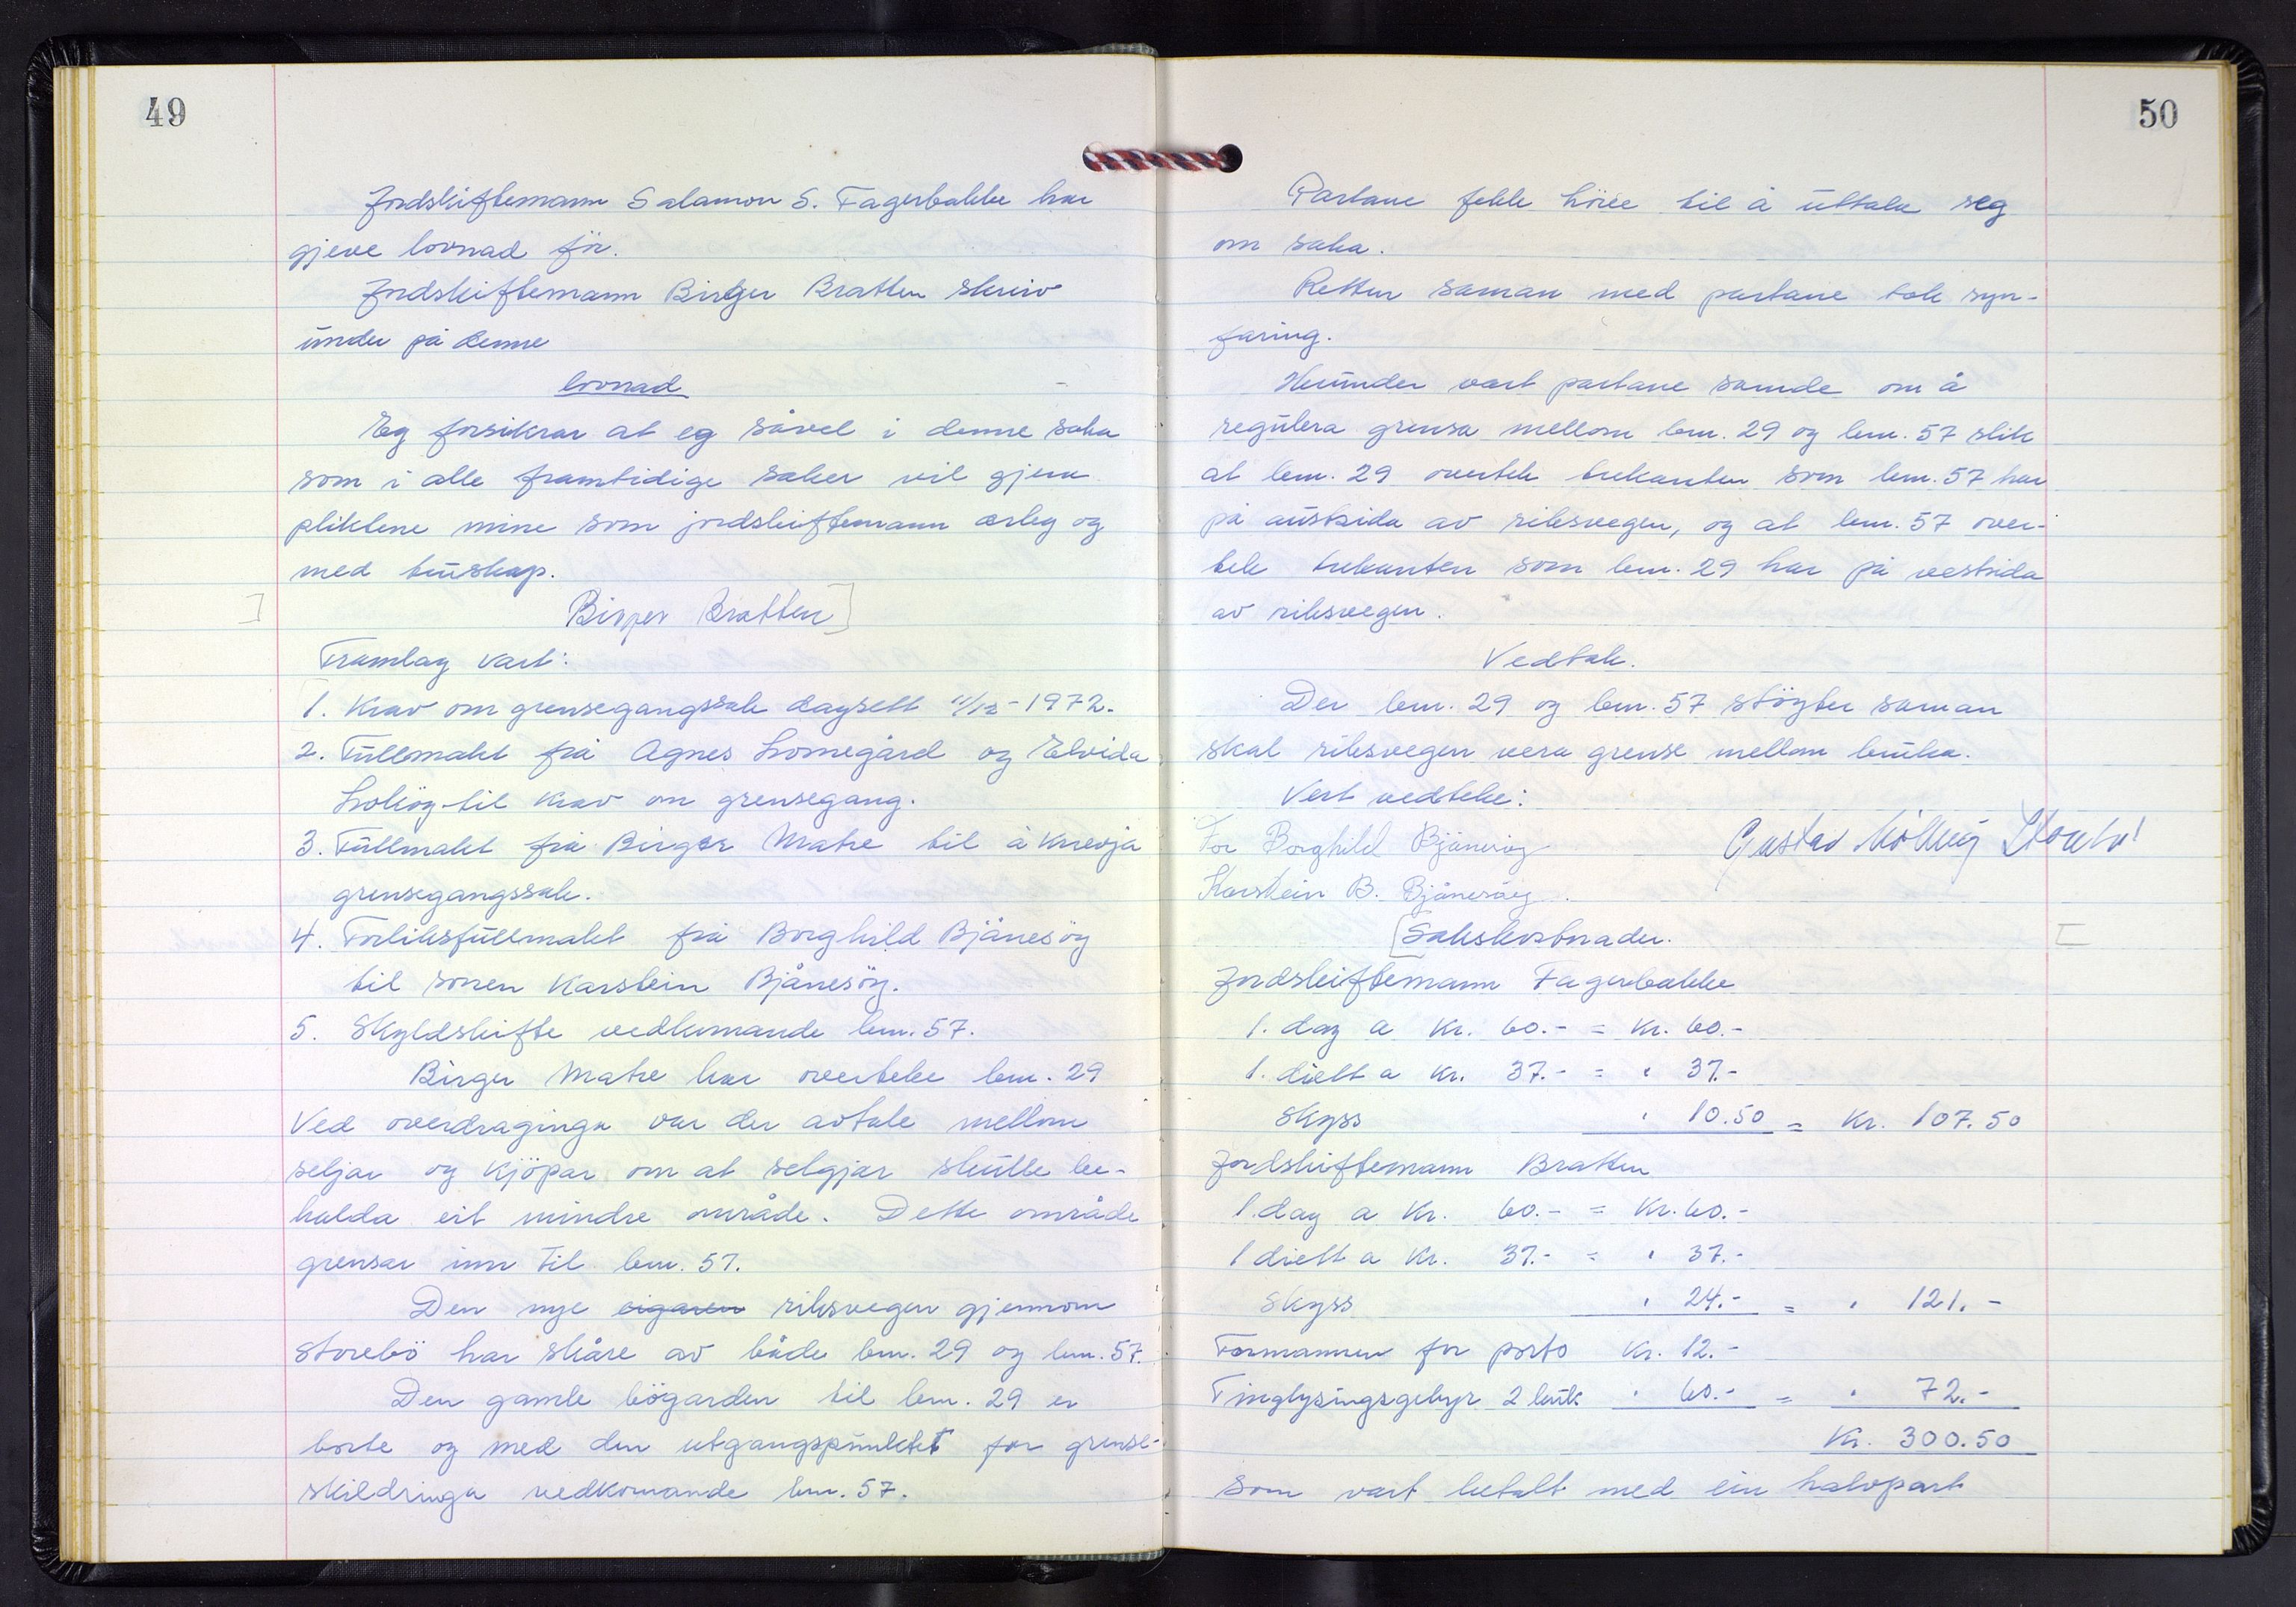 49
Jordskiftemann Salamon S. Fagerbakke har
gjeve lovnad för.
Jordskiftemann Birger Bratten skreiv
under på denne
lovnad
Eg forsikrar at eg såvel i denne saka
som i alle framtidige saker vil gjera
pliktene mine som jordskiftemann ærleg og
med truskap.
Birger Bratten
Framlag vart:
1. Krav om grensegangssak dagsett 11/12-1972.
2. Fullmakt frå Agnes Lomegård og Elvida
til krav om grensegang.
3. Fullmakt frå Birger Matre til å krevja
grensegangssak.
4. Forliksfullmakt frå Borghild Bjånesöy
til sonen Karstein Bjånesöy.
5. Skyldskifte vedkomande bnr. 57.
Birger Matre har overteke bnr. 29
Ved overdraginga var der avtale mellom
seljar og kjöpar om at selgjar skulle be-
halda eit mindre område. Dette område
grensar inn til bnr. 57.
Den nye eigaren riksvegen gjennom
Storebö har skåre av både bnr. 29 og bnr. 57.
Den gamle bögarden til bnr. 29 er
borte og med den utgangspunktet for grense-
skildringa vedkomande bnr. 57.
50
Partane fekk höve til å uttala seg
om saka.
Retten saman med partane tok syn-
faring.
Herunder vart partane samde om å
regulera grensa mellom bnr. 29 og bnr. 57 slik
at bnr. 29 overtek trekanten som bnr. 57 har
på austsida av riksvegen, og at bnr. 57 over-
tek trekanten som bnr. 29 har på vestsida
av riksvegen.
Vedtak.
Der bnr. 29 og bnr. 57 stöyter saman
skal riksvegen vera grense mellom bruka.
Vert vedteke:
For Borghild Bjånesöy Gustav
Karstein B. Bjånesöy.
Sakskostnader.
Jordskiftemann Fagerbakke
1. dag a kr. 60.- = kr. 60.-
1. diett a kr. 37.- = " 37.-
Skyss " 10.50 = Kr. 107.50
Jordskiftemann Bratten
1 dag a kr. 60.- = kr. 60.-
1 diett a kr. 37.- = " 37.-
Skyss " 24.- = " 121.-
Formannen for porto kr. 12.-
Tinglysingsgebyr 2 bruk " 60.- = " 72.-
Kr. 300.50
som vart betalt med ein halvpart